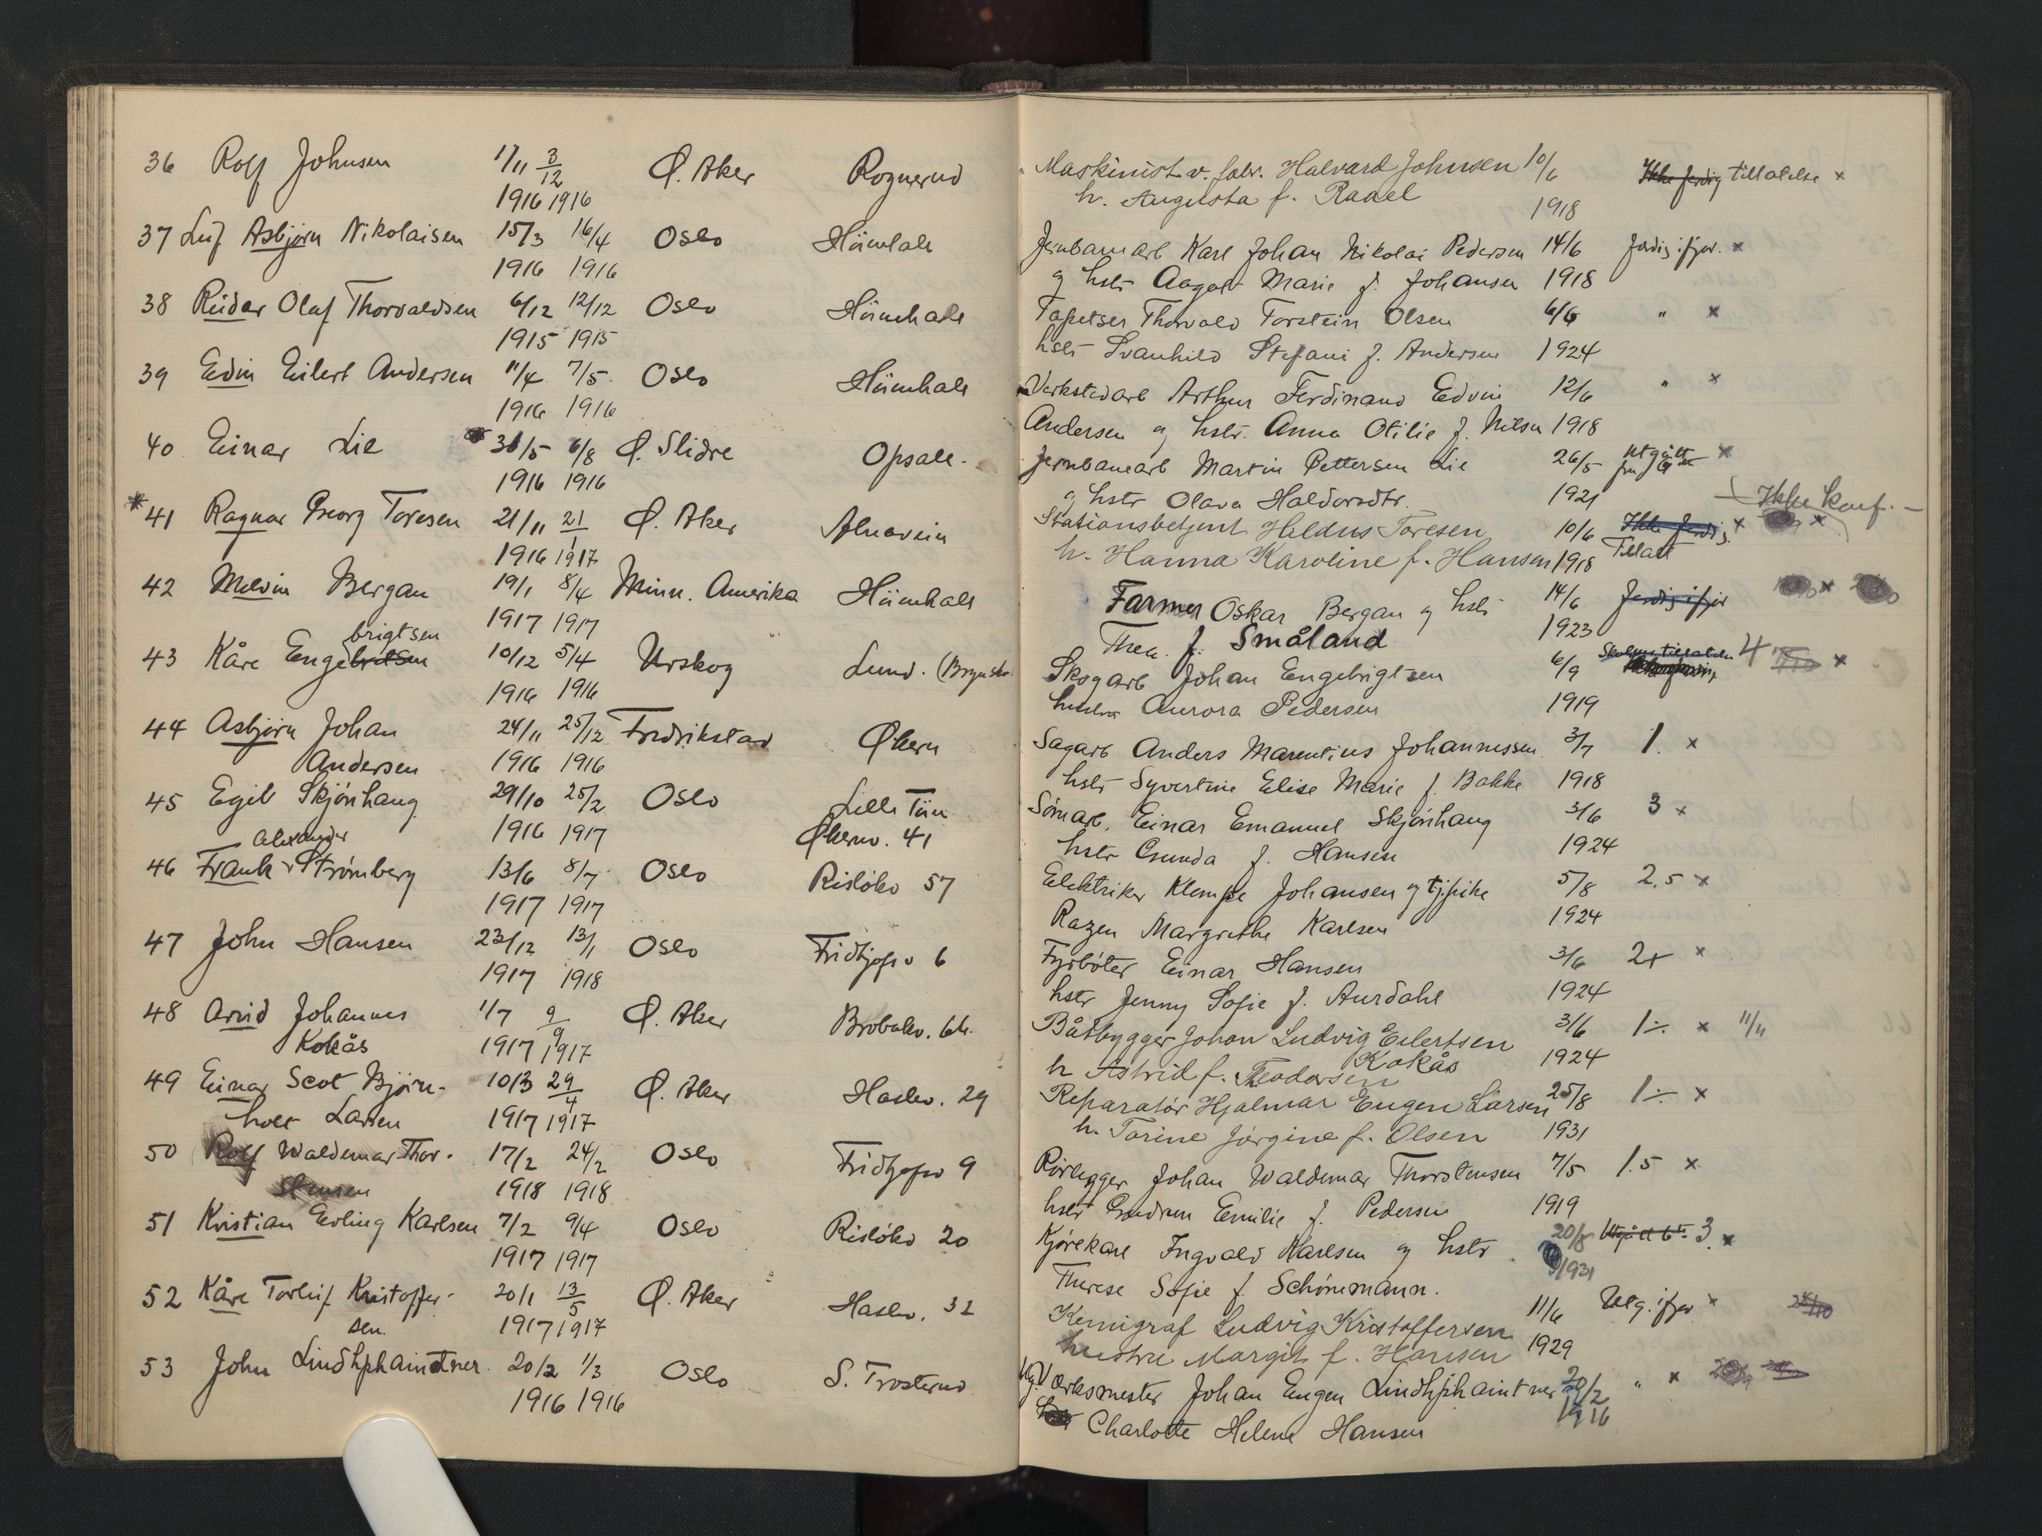 36 Rolf Johnsen 17/11 3/12 Ø. Aker Rognerud
1916 1916
37 Leif Asbjørn Nikolaisen 15/3 16/4 Oslo Höimhall
1916 1916
38 Reidar Olaf Thorvaldsen 6/12 12/12 Oslo Höimhall
1915 1915
39 Edvin Eilert Andersen 11/4 7/5 Oslo Höimhall
1916 1916
40 Einar Lie 31/5 6/8 Ø. Slidre Opsal.
1916 1916
41 Ragnar Georg Toresen 21/11 21/1 Ø. Aker Alnavein
1916 1917
42 Melvin Bergan 19/1 8/4 Minn. Amerika Höimhall
1917 1917
brigtsen
43 Kåre Engebretsen 10/12 5/4 Urskog Lund.
1916 1916
44 Asbjørn Johan 24/11 25/12 Fredrikstad Økern
Andersen 1916 1916
45 Egil Skjönhaug 29/10 25/2 Oslo Lille Tün
1916 1917 Økernv. 41
Alexander
46 Frank Strömberg 13/6 8/7 Oslo Rislökv 57
1917 1917
47 John Hansen 23/12 13/1 Oslo Fridtjofsv 6
1917 1918
48 Arvid Johannes 1/7 9/9 Ø. Aker Brobekv. 64.
Kokås 1917 1917
49 Einar Scot Bjørn- 10/3 29/4 Ø. Aker Haslev. 29
holt Larsen 1917 1917
50 Rolf Waldemar Thor- 17/2 24/2 Oslo Fridtjofsv 9
stensen 1918 1918
51 Kristian Erling Karlsen 7/2 9/4 Oslo Rislökv 20
1917 1917
52 Kåre Torleif Kristoffer- 20/1 13/5 Ø. Aker Haslev. 32
sen. 1917 1917
53 John Lindhphaintner 20/2 1/3 Oslo S. Trosterud
1916 1916
Maskinist v. fabr. Halvard Johnsen 10/6 Ikke ferdig tillatelse x
h. Augusta f. Raael 1918
Jernbanearb Karl Johan Nikolai Pedersen 14/6 Ferdig ifjor. x
og hstr Aagot Marie f. Johansen 1918
Tapetser Thorvald Torstein Olsen 6/6 " x
hstr Svanhild Stefani f. Andersen 1924
Verkstedarb Arthur Ferdinand Edvin 12/6 " x
Andersen og hstr. Anna Otilie f. Nilsen 1918
Jernbanearb Martin Pettersen Lie 26/5 Utgått x
og hstr Olava Haldorsdtr. 1921 Ikke konf.
Stationsbetjent Heldus Toresen 10/6 Ikke ferdig x x
h. Hanna Karoline f. Hansen 1918 Tillatt
Farmer Oskar Bergan og hstr 14/6 Ferdig ifjor x
Thea f. Småland 1923
Skogarb Johan Engebrigtsen 6/9 4 x
hustru Aurora Pedersen 1919
Sagarb Anders Marentius Johannessen 3/7 1. x
hstr Syvertine Elise Marie f. Bakke 1918
Sömarb. Einar Emanuel Skjönhaug 3/6 3 x
hstr Gunda f. Hansen 1924
Elektriker Klempe Johansen og tj.pike 5/8 2.5 x
Razen Margrethe Karlsen 1924
Fyrböter Einar Hansen 3/6 2+ x
hstr Jenny Sofie f. Aurdahl 1924
Båtbygger Johan Ludvig Eilertsen 3/6 1÷ x 11/11
Kokås
h Astrid f. Theodorsen 1924
Reparatør Hjalmar Eugen Larsen 25/8 1÷ x
h. Torine Jörgine f. Olsen 1931
Rörlegger Johan Waldemar Thorstensen 7/5 1.5 x
hstr Gudrun Emilie f. Pedersen 1919
Kjörekar Ingvald Karlsen og hstr 20/8 Utgått 3. x
Therese Sofie f Schönemann. 1931
Kemigraf Ludvig Kristoffersen 11/6 Utg. ifjor x
hustru Margit f. Hansen 1929
Værksmester Johan Eugen Lindhphaintner 20/2 " x
Charlotte Helene Hansen 1916